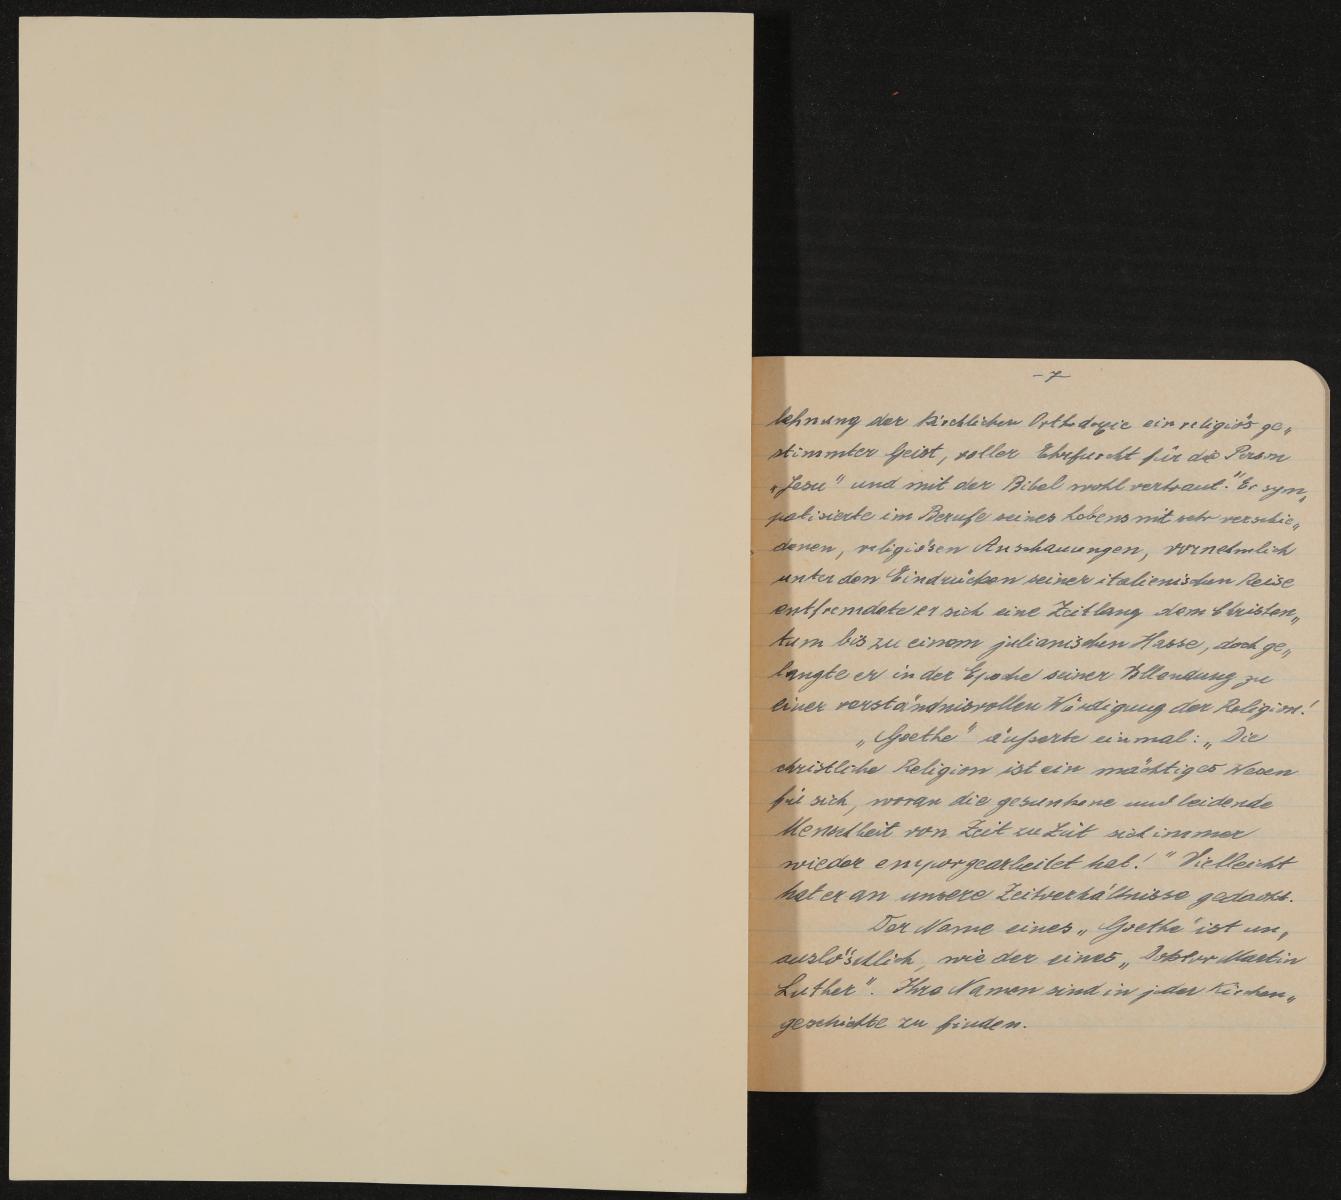 -7-
lehnung der kirchlichen Orthodoxie ein religiös ge„
stimmter Geist, voller Ehrfurcht für die Person
„Jesu" und mit der Bibel wohl vertraut." Er sym„
patisierte im Berufe seines Lebens mit sehr verschie„
denen, religiösen Anschauungen, vornehmlich
unter den Eindrücken seiner italienischen Reise
entfremdete er sich eine Zeitlang dem Christen„
tum bis zu einem julianischen Hasse, doch ge„
langte er in der Epoche seiner Vollendung zu
einer verständnisvollen Würdigung der Religion!
„Goethe" äußerte einmal: „Die
christliche Religion ist ein mächtiges Wesen
für sich, woran die gesunkene und leidende
Menschheit von Zeit zu Zeit sich immer
wieder emporgearbeitet hat!" Vielleicht
hat er an unsere Zeitverhältnisse gedacht.
Der Name eines „Goethe" ist un„
auslöschlich, wie der eines „Doktor Martin
Luther". Ihre Namen sind in jeder Kirchen„
geschichte zu finden.